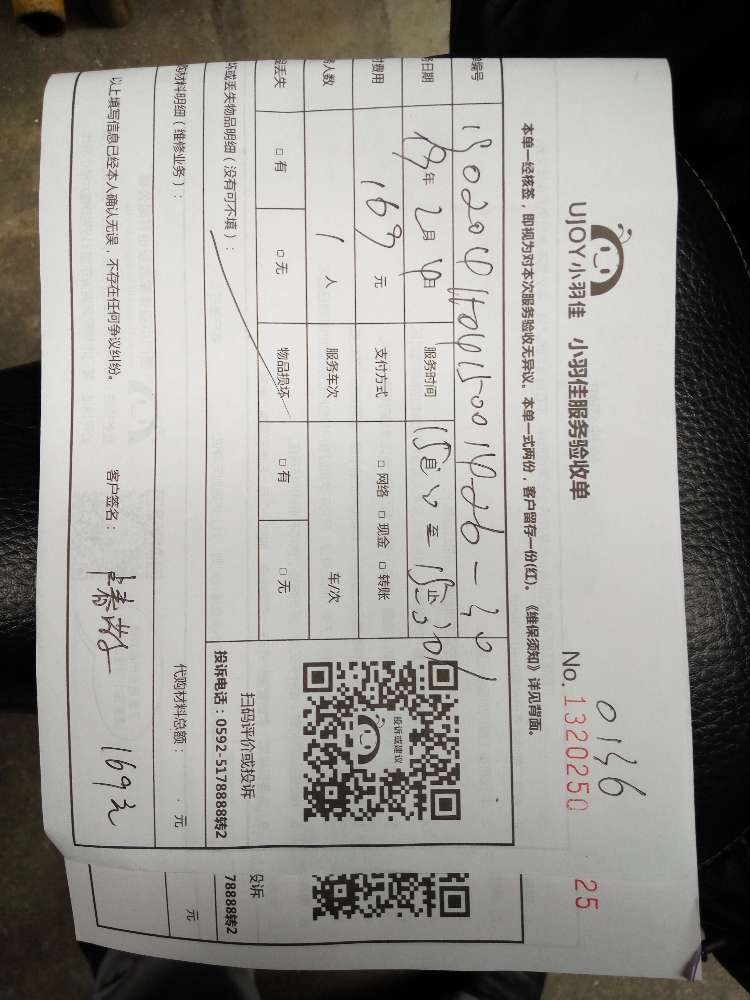 0136
UJOY小羽佳 小羽佳服务验收单 No.1320250
本单一经核签，即视为对本次服务验收无异议。本单一式两份，客户留存一份(红)。《维保须知》详见背面。
编号
日期 年 2 月 日 服务时间 自 至 止
费用 169 元 支付方式 □ 网络 □ 现金 □ 转账
人数 1 人 服务车次 车/次
丢失 □ 有 □ 无 物品损坏 □ 有 □ 无
投诉或建议
扫码评价或投诉
投诉电话：0592-5178888转2
坏或丢失物品明细（没有可不填）：
购材料明细（维修业务）： 代购材料总额： 元
以上填写信息已经本人确认无误，不存在任何争议纠纷。 客户签名： 169元
25
投诉
78888转2
元